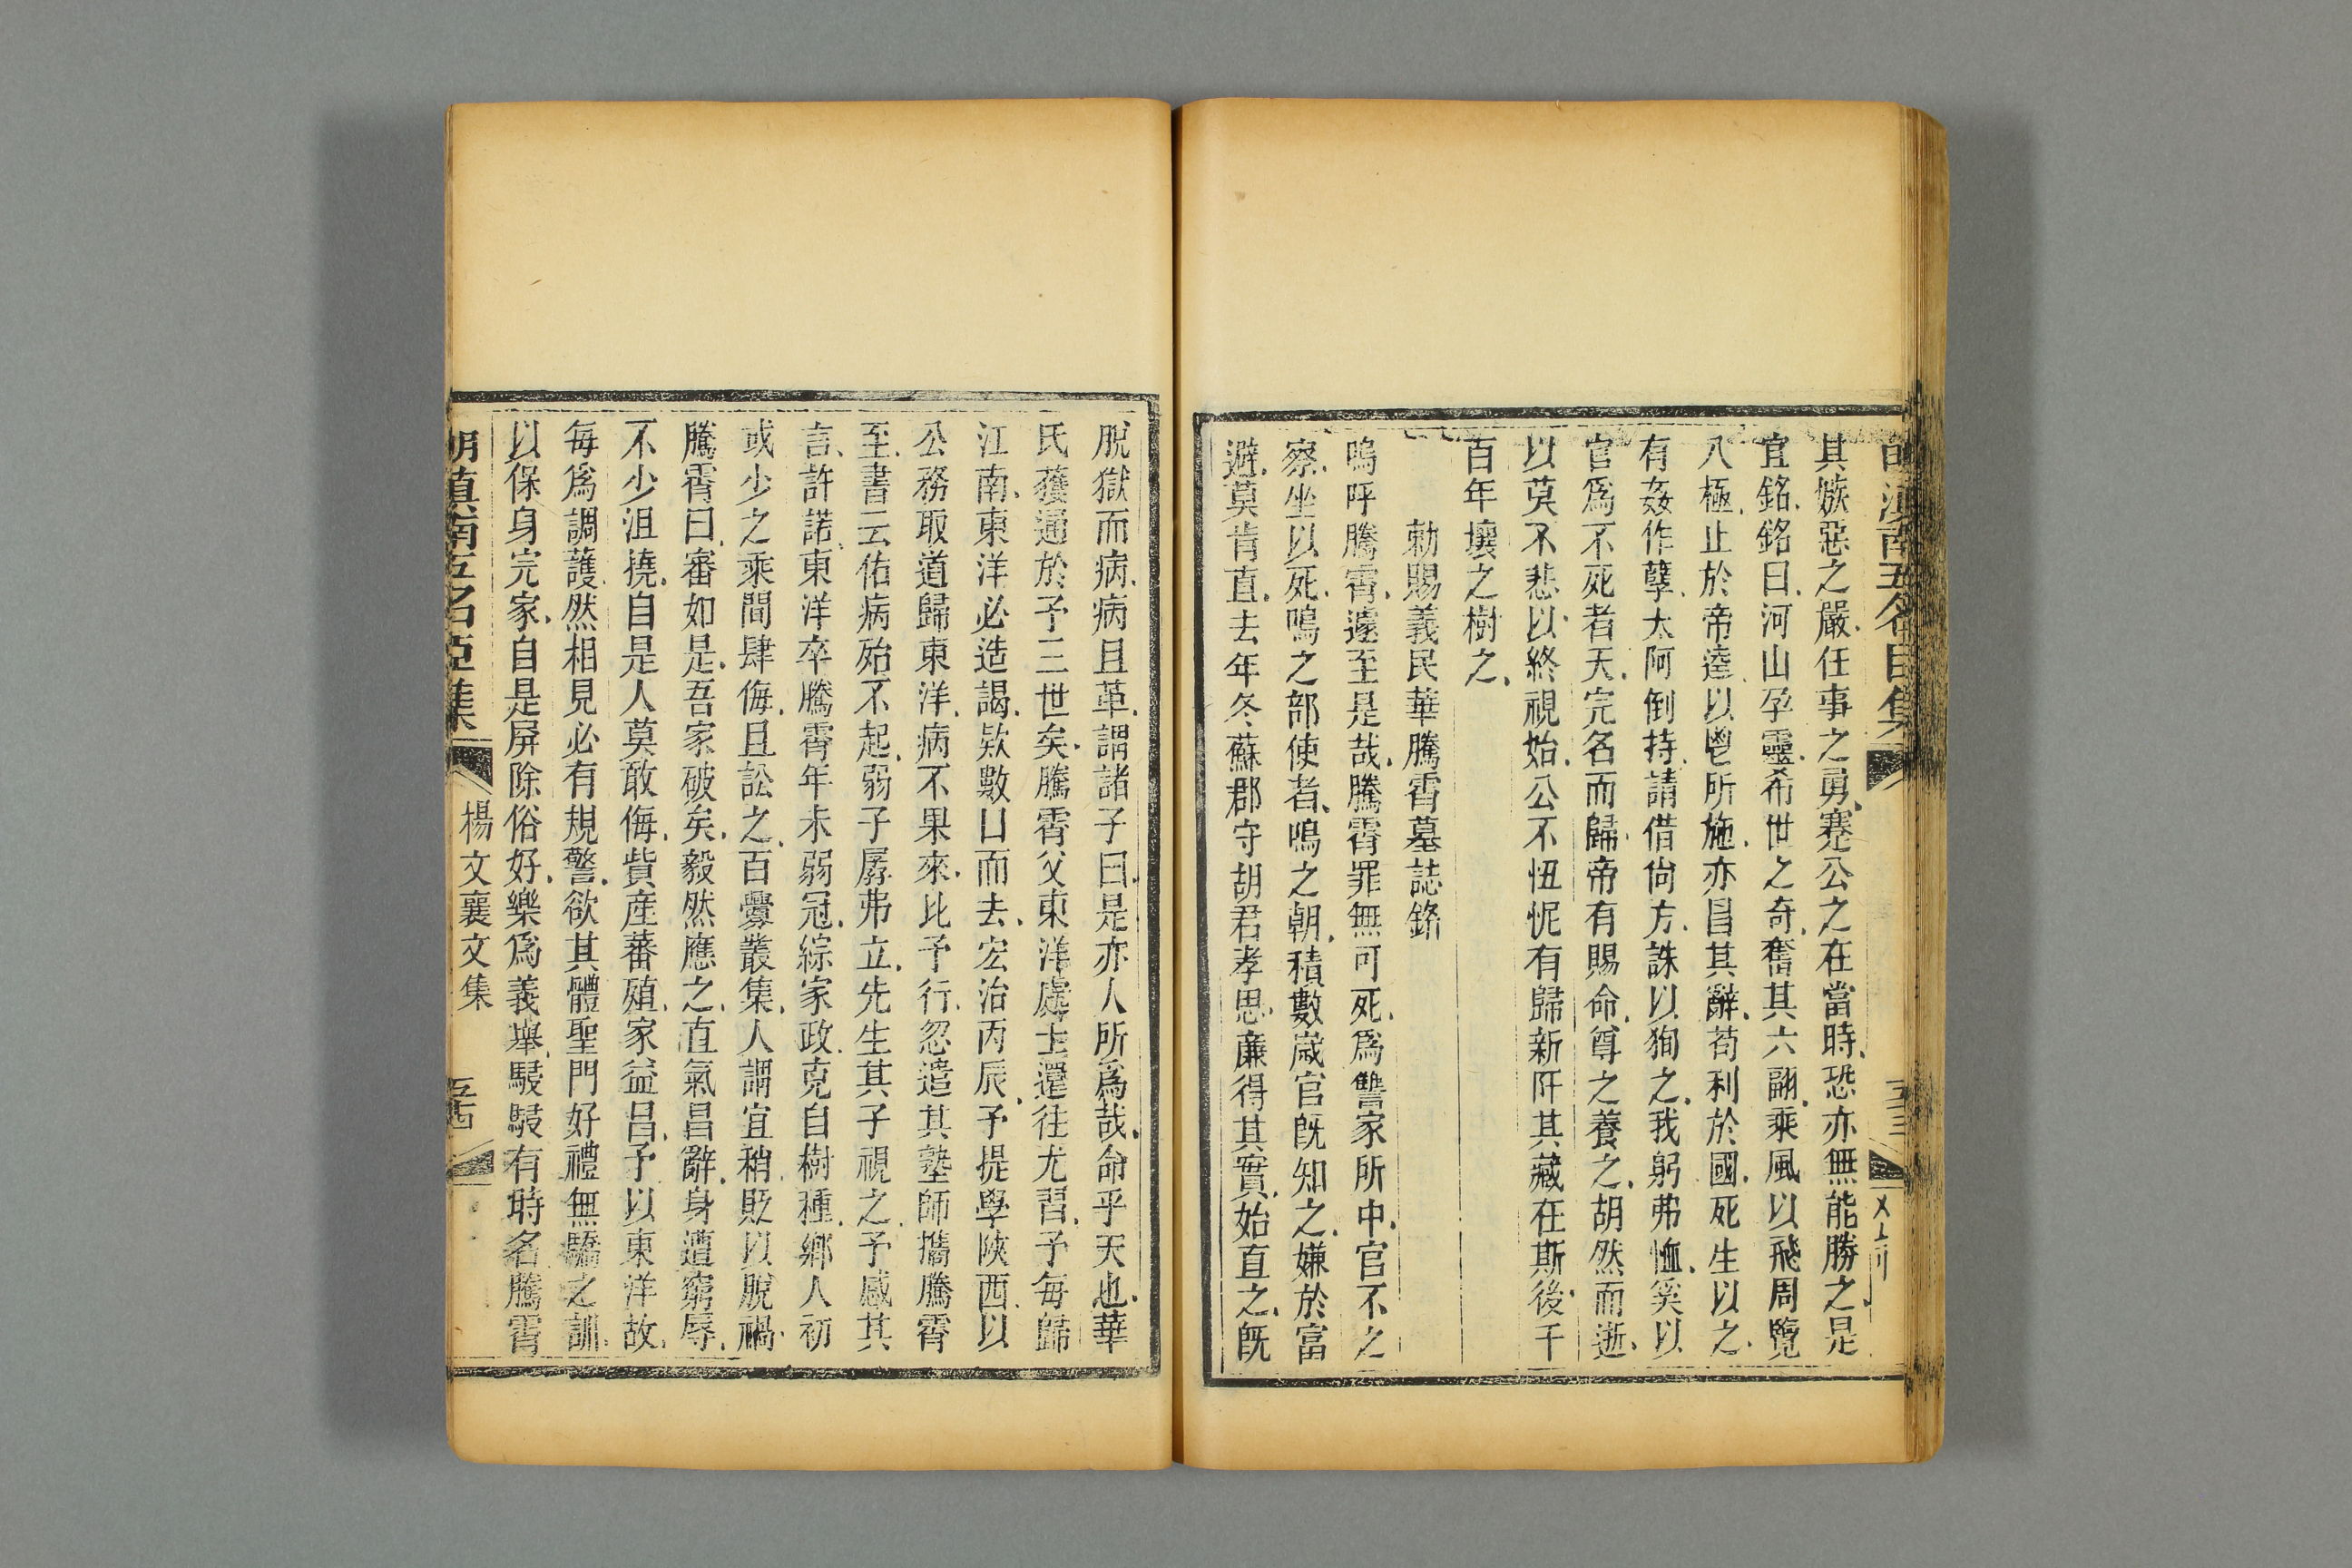 其嫉惡之嚴任事之勇蹇公之在當時恐亦無能勝之是
宜銘銘曰河山孕靈希世之奇奮其六翮乘風以飛周覽
八極止於帝逵以鬯所施亦昌其辭苟利於國死生以之
有姦作孽太阿倒持請借尙方誅以狥之我躬弗恤奚以
官爲不死者天完名而歸帝有賜命尊之養之胡然而逝
以莫不悲以終視始公不忸怩有歸新阡其藏在斯後千
百年壤之樹之
勅賜義民華騰霄墓誌銘
嗚呼騰霄遽至是哉騰霄罪無可死爲讐家所中官不之
察坐以死鳴之部使者鳴之朝積數嵗官旣知之嫌於富
避莫肯直去年冬蘇郡守胡君孝思廉得其實始直之旣
脫獄而病病且革謂諸子曰是亦人所爲哉命乎天也華
氏獲通於予三世矣騰霄父東洋處士還往尤習予每歸
江南東洋必造謁欵數日而去宏治丙辰予提學陝西以
公務取道歸東洋病不果來比予行忽遣其塾師攜騰霄
至書云佑病殆不起弱子孱弗立先生其子視之予感其
言許諾東洋卒騰霄年未弱冠綜家政克自樹種鄉人初
或少之乘間肆侮且訟之百釁叢集人謂宜稍貶以脫禍
騰霄曰審如是吾家破矣毅然應之直氣昌辭身遭窮辱
不少沮撓自是人莫敢侮貲産蕃殖家益昌予以東洋故
每爲調護然相見必有規警欲其體聖門好禮無驕之訓
以保身完家自是屏除俗好樂爲義舉駸駸有時名騰霄
明滇南五名臣集
楊文襄文集
五十四